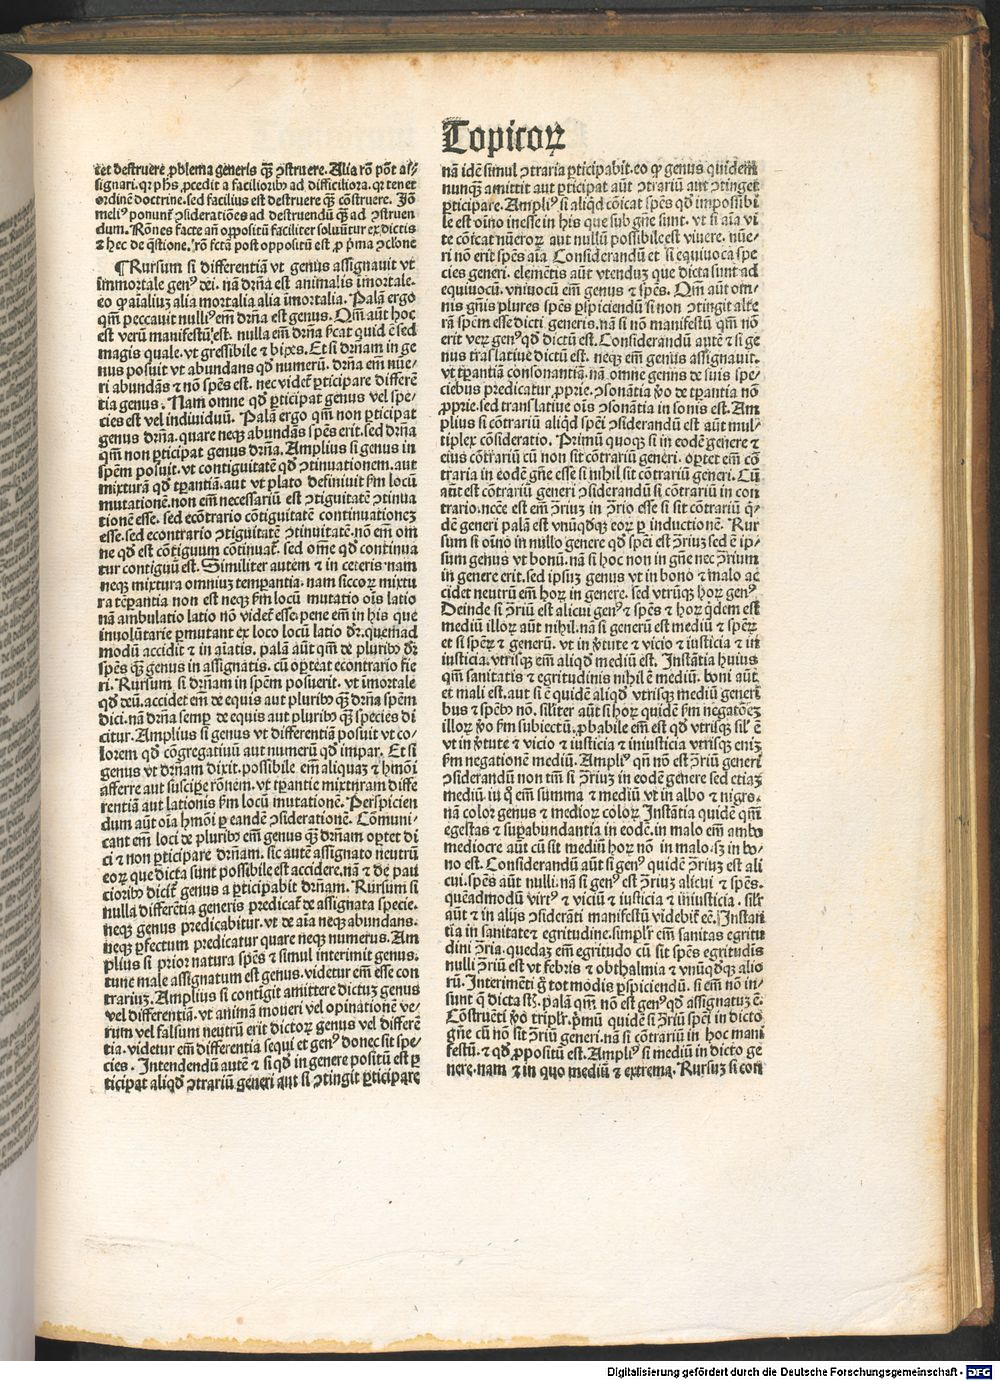 Topicoꝝ
tet destruere ꝓblema generis qꝫ ꝯstruere. Alia rō pōt as/
signari. qꝛ phs ꝓcedit a facilioribꝰ ad difficiliora. qꝛ tenet
ordinē doctrine. sed facilius est destruere qꝫ cōstruere. Iō
meliꝰ ponunt̄ ꝯsideratiōes ad destruendū qꝫ ad ꝯstruen
dum. Rōnes facte añ oppositū faciliter soluūtur ex dictis
⁊ hec de q̄stione. rō fctā post oppositū est ꝓ p̄ma ꝯclōne
¶ Rursum si differentiā vt genus assignauit vt
immortale genꝰ dei. nā dr̄na est animalis īmortale.
eo ꝙ aialiuꝫ alia mortalia alia īmortalia. Palā ergo
qm̄ peccauit nulliꝰ em̄ dr̄na est genus. Qm̄ aūt hoc
est verū manifestū est. nulla em̄ dr̄na sīcat quid ē sed
magis quale. vt gressibile ⁊ bipes. Et si dr̄nam in ge
nus posuit vt abundans qd̄ numerū. dr̄na em̄ nūe/
ri abundās ⁊ nō spēs est. nec videt̄ ꝑticipare differē
tia genus. Nam omne qd̄ ꝑticipat genus vel spe/
cies est vel indiuiduū. Palā ergo qm̄ non ꝑticipat
genus dr̄na. quare neqꝫ abundās spēs erit. sed dr̄na
qm̄ non ꝑticipat genus dr̄na. Amplius si genus in
spēm posuit. vt contiguitatē qd̄ ꝯtinuationem. aut
mixturā qd̄ tꝑantiā. aut vt plato definiuit ẜm locū
mutationē. non em̄ necessariū est ꝯtiguitatē ꝯtinua
tionē esse. sed ecōtrario cōtiguitatē continuationeꝫ
esse. sed econtrario ꝯtiguitatē ꝯtinuitatē. nō em̄ om
ne qd̄ est cōtiguum cōtinuat̄. sed om̄e qd̄ continua
tur contiguū est. Similiter autem ⁊ in ceteris. nam
neqꝫ mixtura omniuꝫ temꝑantia. nam siccoꝝ mixtu
ra tēꝑantia non est neqꝫ ẜm locū mutatio oīs latio
nā ambulatio latio nō videt̄ esse. pene em̄ in his que
inuolūtarie ꝑmutant ex loco locū latio dꝛ. quēmad
modū accidit ⁊ in aīatis. palā aūt qm̄ de pluribꝰ dꝛ
spēs qꝫ genus in assignatis. cū oꝑteat econtrario fie
ri. Rursum si dr̄nam in spēm posuerit. vt īmortale
qd̄ deū. accidet em̄ de equis aut pluribꝰ qꝫ dr̄na spēm
dici. nā dr̄na semꝑ de equis aut pluribꝰ qꝫ species di
citur. Amplius si genus vt differentiā posuit vt co/
lorem qd̄ cōgregatiuū aut numerū qd̄ impar. Et si
genus vt dr̄nam dixit. possibile em̄ aliquaꝫ ⁊ hmōi
afferre aut susciꝑe rōnem. vt tꝑantie mixturam diffe
rentiā aut lationis ẜm locū mutationē. Perspicien
dum aūt oīa hmōi ꝑ eandē ꝯsiderationē. Cōmuni/
cant em̄ loci de pluribꝰ em̄ genus qꝫ dr̄nam oꝑtet di
ci ⁊ non ꝑticipare dr̄nam. sic aute assignato neutrū
eoꝝ que dicta sunt possibile est accidere. nā ⁊ de pau
cioribꝰ dicit̄ genus a ꝑticipabit dr̄nam. Rursum si
nulla differētia generis predicat̄ de assignata specie.
neqꝫ genus predicabitur. vt de aīa neqꝫ abundans.
neqꝫ ꝑfectum predicatur quare neqꝫ numerus. Am
plius si prior natura spēs ⁊ simul interimit genus.
tunc male assignatum est genus. videtur em̄ esse con
trariuꝫ. Amplius si contigit amittere dictuꝫ genus
vel differentiā. vt animā moueri vel opinationē ve/
rum vel falsum neutrū erit dictoꝝ genus vel differē
tia. videtur em̄ differentia sequi et genꝰ donec sit spe/
cies. Intendendū autē ⁊ si qd̄ in genere positū est ꝑ
ticipat aliqd̄ ꝯtrariū generi aut si ꝯtingit ꝑticipare
nā idē simul ꝯtraria ꝑticipabit. eo ꝙ genus quidem
nunqꝫ amittit aut ꝑticipat aūt ꝯtrariū aut ꝯtinget
ꝑticipare. Ampliꝰ si aliqd̄ cōicat spēs qd̄ impossibi
le est oīno inesse in his que sub gn̄e sunt. vt si aīa vi
te cōicat nūeroꝝ aut nullū possibile est viuere. nūe/
ri nō erit spēs aīa. Considerandū et si equiuoca spe
cies generi. elemētis aūt vtenduꝫ que dicta sunt ad
equiuocū. vniuocū em̄ genus ⁊ spēs. Qm̄ aūt om/
nis gn̄is plures spēs ꝑspiciendū si non ꝯtingit alte
rā spēm esse dicti generis. nā si nō manifestū qm̄ nō
erit verꝰ genꝰ qd̄ dictū est. Considerandū autē ⁊ si ge
nus translatiue dictū est. neqꝫ em̄ genus assignauit.
vt tꝑantiā consonantiā. nā omne genus de suis spe/
ciebus predicatur ꝓprie. ꝯsonātia ꝟo de tꝑantia nō
ꝓprie. sed translatiue oīs ꝯsonātia in sonis est. Am
plius si cōtrariū aliqd̄ spēi ꝯsiderandū est aūt mul/
tiplex cōsideratio. Primū quoqꝫ si in eodē genere ⁊
eius cōtrariū cū non sit cōtrariū generi. oꝑtet em̄ cō
traria in eodē gn̄e esse si nihil sit cōtrariū generi. Cū
aūt est contrariū generi ꝯsiderandū si cōtrariū in con
trario. ncc̄e est em̄ ꝯriuꝫ in ꝯrio esse si sit cōtrariū q̄/
dē generi palā est vnūqd̄qꝫ eoꝝ ꝑ inductionē. Rur
sum si oīno in nullo genere qd̄ spēi est ꝯriuꝫ sed ē ip/
sum genus vt bonū. nā si hoc non in gn̄e nec ꝯrium
in genere erit. sed ipsiuꝫ genus vt in bono ⁊ malo ac
cidet neutrū em̄ hoꝝ in genere. sed vtrūqꝫ hoꝝ genꝰ
Deinde si ꝯriū est alicui genꝰ ⁊ spēs ⁊ hoꝝ q̄dem est
mediū illoꝝ aūt nihil. nā si generū est mediū ⁊ spēꝝ
et si spēꝝ ⁊ generū. vt in ꝟtute ⁊ vicio ⁊ iusticia ⁊ in
iusticia. vtrisqꝫ em̄ aliqd̄ mediū est. Instātia huius
qm̄ sanitatis ⁊ egritudinis nihil ē mediū. boni aūt
et mali est. aut si ē quidē aliqd̄ vtrisqꝫ mediū generi
bus ⁊ spēbꝰ nō. siliter aūt si hoꝝ quidē ẜm negatōeꝫ
illoꝝ ꝟo ẜm subiectū. ꝓbabile em̄ est qd̄ vtrisqꝫ sil̄r ē
vt in ꝟtute ⁊ vicio ⁊ iusticia ⁊ iniusticia vtrisqꝫ eniꝫ
ẜm negationē mediū. Ampliꝰ qn̄ nō est ꝯriū generi
ꝯsiderandū non tm̄ si ꝯriuꝫ in eodē genere sed etiaꝫ
mediū. in q̊ em̄ summa ⁊ mediū vt in albo ⁊ nigro.
nā color genus ⁊ medioꝝ coloꝝ. Instātia quidē qm̄
egestas ⁊ suꝑabundantia in eodē. in malo em̄ ambo
mediocre aūt cū sit mediū hoꝝ nō in malo. sꝫ in bo/
no est. Considerandū aūt si genꝰ quidē ꝯriuꝫ est ali
cui. spēs aūt nulli. nā si genꝰ est ꝯriuꝫ alicui ⁊ spēs.
quēadmodū virtꝰ ⁊ viciū ⁊ iusticia ⁊ iniusticia. sil̄r
aūt ⁊ in alijs ꝯsiderāti manifestū videbit̄ eē. Instan
tia in sanitate ⁊ egritudine. simpl̄r em̄ sanitas egritu
dini ꝯria. quedaꝫ em̄ egritudo cū sit spēs egritudis
nulli ꝯriū est vt febris ⁊ obthalmia ⁊ vnūqd̄qꝫ alio
rū. Interimēti g̊ tot modis ꝑspiciendū. si em̄ nō in/
sunt q̄ dicta st̄. palā qm̄ nō est genꝰ qd̄ assignatuꝫ ē.
Cōstruēti ꝟo tripl̄r. p̄mū quidē si ꝯriū spēi in dicto
gn̄e cū nō sit ꝯriū generi. nā si cōtrariū in hoc mani
festū. ⁊ qd̄ ꝓpositū est. Ampliꝰ si mediū in dicto ge
nere. nam ⁊ in quo mediū ⁊ extrema. Rursuꝫ si con
Digitalisierung gefördert durch die Deutsche Forschungsgemeinschaft - DFG